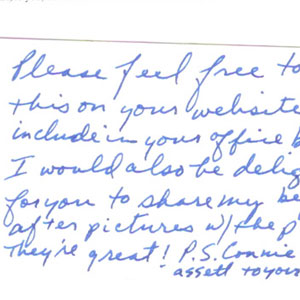 Please feel free to
this on your website
include in your office b
I would also be delig
for you to share my be
after pictures w/ the p
They're great! P.S. Connie
assett to your